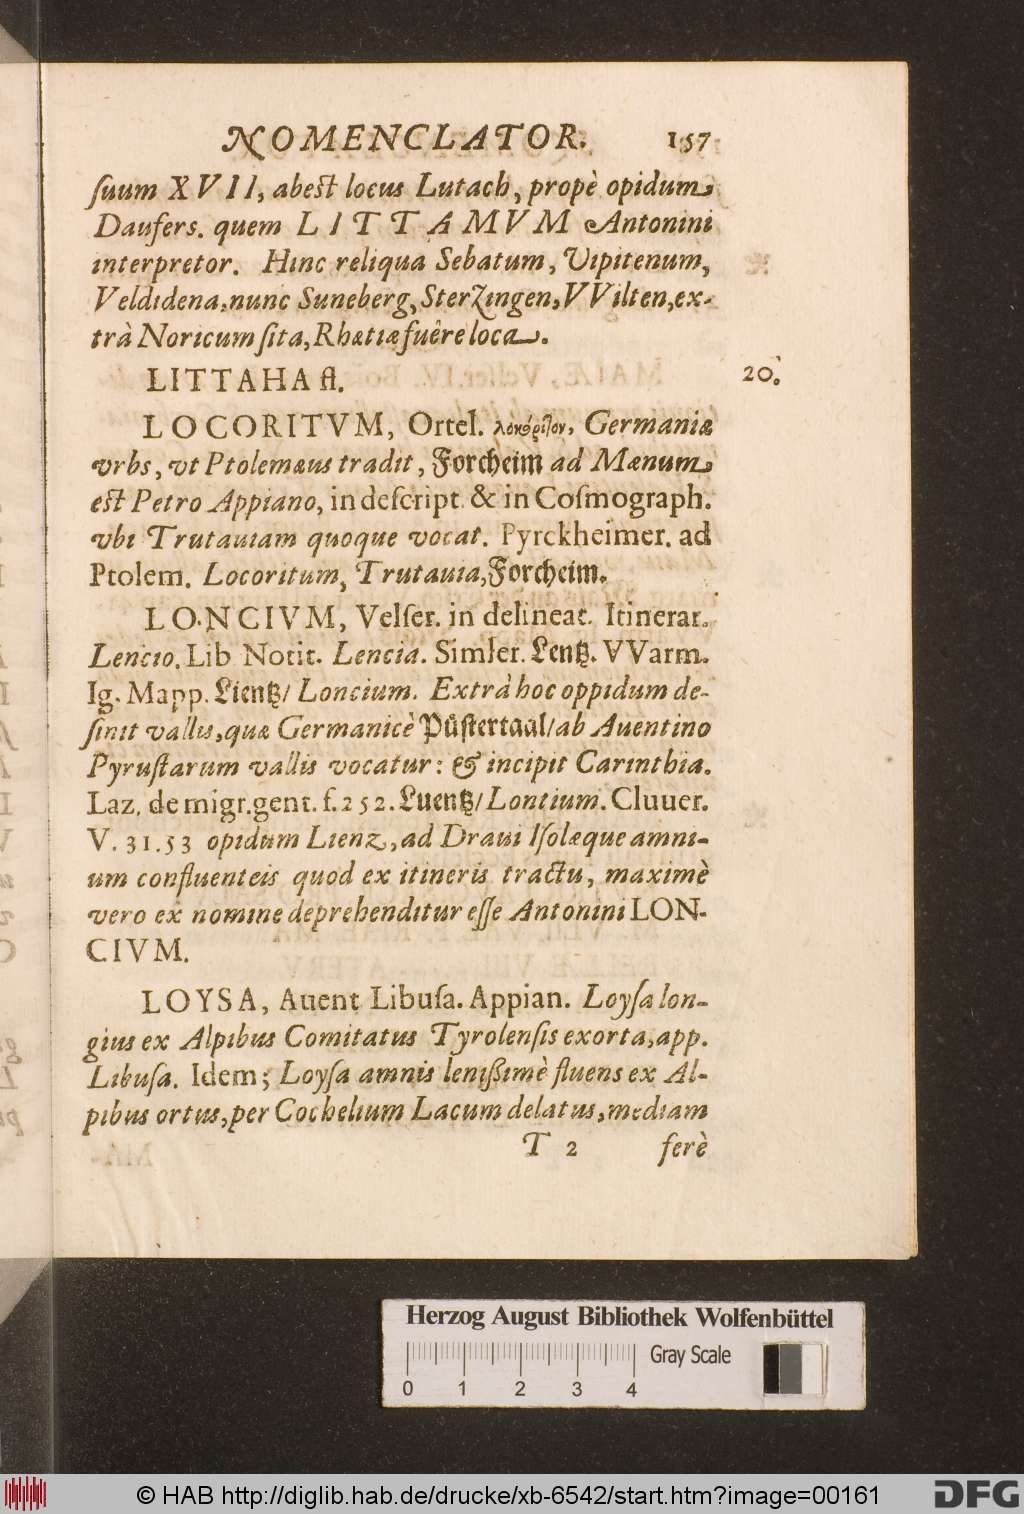 NOMENCLATOR. 157
suum XVII, abest locus Lutach, propè opidum
Daufers. quem LITTAMVM Antonini
interpretor. Hinc reliqua Sebatum, Vipitenum,
Veldidena, nunc Suneberg, Sterzingen, VVilten, ex-
trà Noricum sita, Rhætiæ fuêre loca.
LITTAHA fl. 20.
LOCORITVM, Ortel. λοκόριτον, Germaniæ
vrbs, vt Ptolemæus tradit, Forcheim ad Mænum
est Petro Appiano, in descript. & in Cosmograph.
vbi Trutauiam quoque vocat. Pyrckheimer. ad
Ptolem. Locoritum, Trutauia, Forcheim.
LONCIVM, Velser. in delineat. Itinerar.
Lencio. Lib Notit. Lencia. Simler. Lentz. VVarm.
Ig. Mapp. Lientz/ Loncium. Extrà hoc oppidum de-
sinit vallis, quæ Germanicè Püstertaal/ ab Auentino
Pyrustarum vallis vocatur: & incipit Carinthia.
Laz. de migr. gent. f. 252. Luentz/ Lontium. Cluuer.
V. 31. 53 opidum Lienz, ad Draui Isolæque amni-
um confluenteis quod ex itineris tractu, maximè
vero ex nomine deprehenditur esse Antonini LON-
CIVM.
LOYSA, Auent Libusa. Appian. Loysa lon-
gius ex Alpibus Comitatus Tyrolensis exorta, app.
Libusa. Idem; Loysa amnis lenißimè fluens ex Al-
pibus ortus, per Cochelium Lacum delatus, mediam
T 2 ferè
Herzog August Bibliothek Wolfenbüttel
Gray Scale
0 1 2 3 4
© HAB http://diglib.hab.de/drucke/xb-6542/start.htm?image=00161
DFG